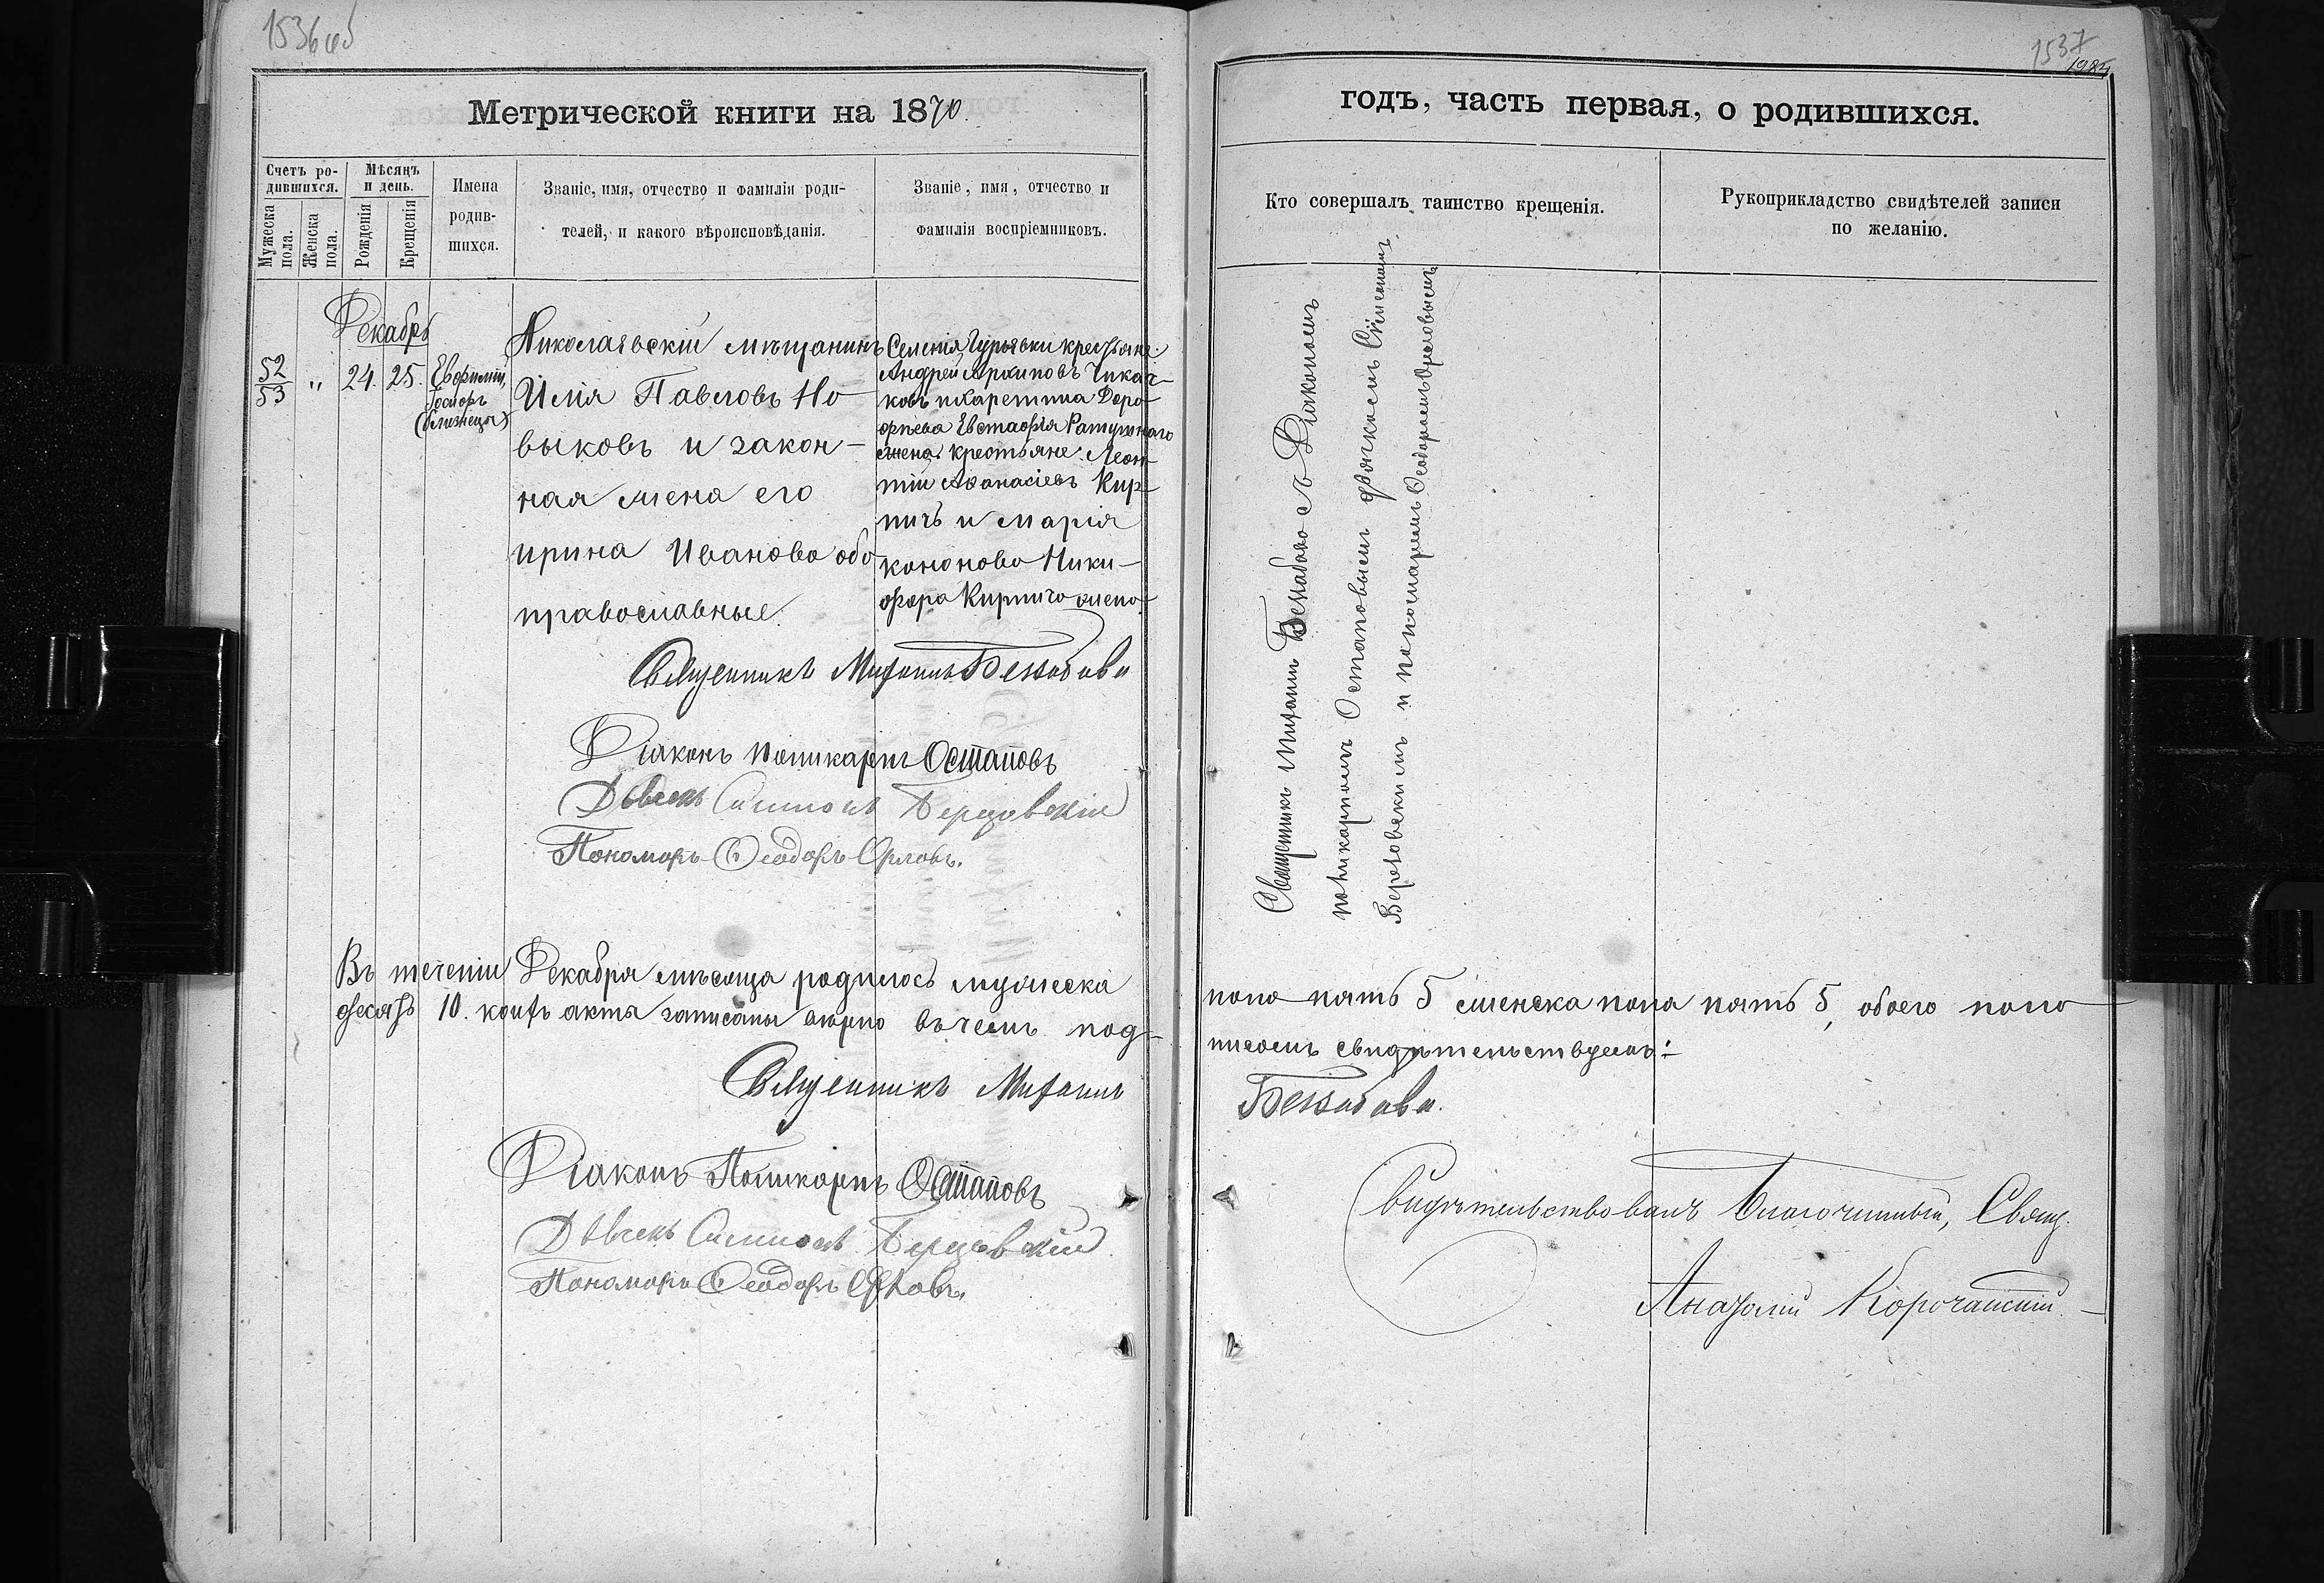 1536 об
Метрической книги на 1870.
Счетъ ро-
дившихся.
Мужеска
пола.
Женска
пола.
Мѣсяцъ
и день.
Рожденія
Крещенія
Имена
родив-
шихся.
Званіе, имя, отчество и фамилія роди-
телей, и какого вѣроисповѣданія.
Званіе, имя, отчество и
фамилія воспріемниковъ.
Декабрь
52
53
"
24.
25.
Евфимій,
(близнецы)
Николаявскій мѣщанинъ
Илія Павловъ Но-
выковъ и закон-
ная жена его
Ирина Иванова обо
православные.
Селенія Гурьевки крестьяне:
Андрей Архиповъ
Доро-
феева Евстафія
жена. крестьяне: Леон-
тій Афанасіевъ Кир-
пичъ и Марія
Кононова Ники-
фора Кирпича жена
Священникъ Михаилъ
Діаконъ Поликарпъ Остаповъ
Дьячекъ Симеонъ
Пономарь Феодоръ Орловъ.
Въ теченіи Декабря мѣсяца родилось мужеска
десять 10. коихъ акты записаны вѣрно въ чемъ под-
Священникъ Михаилъ
Діаконъ Поликарпъ Остаповъ
Дьячекъ Симеонъ
Пономарь Феодоръ Орловъ.
1537
годъ, часть первая, о родившихся.
Кто совершалъ таинство крещенія.
Рукоприкладство свидѣтелей записи
по желанію.
Священникъ Михаилъ съ Діакономъ
Поликарпомъ Остаповымъ дьячкомъ Симеономъ
и пономаремъ Феодоромъ Орловымъ
пола пять 5 женска пола пять 5, обоего пола
писомъ свидѣтельствуемъ:
Свидѣтельствовалъ Благочинный, Свящ.
Анатолій